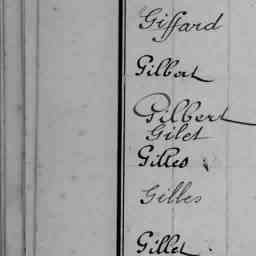 Giffard
Gilbert
Gilbert
Gilet
Gilles
Gilles
Gillet